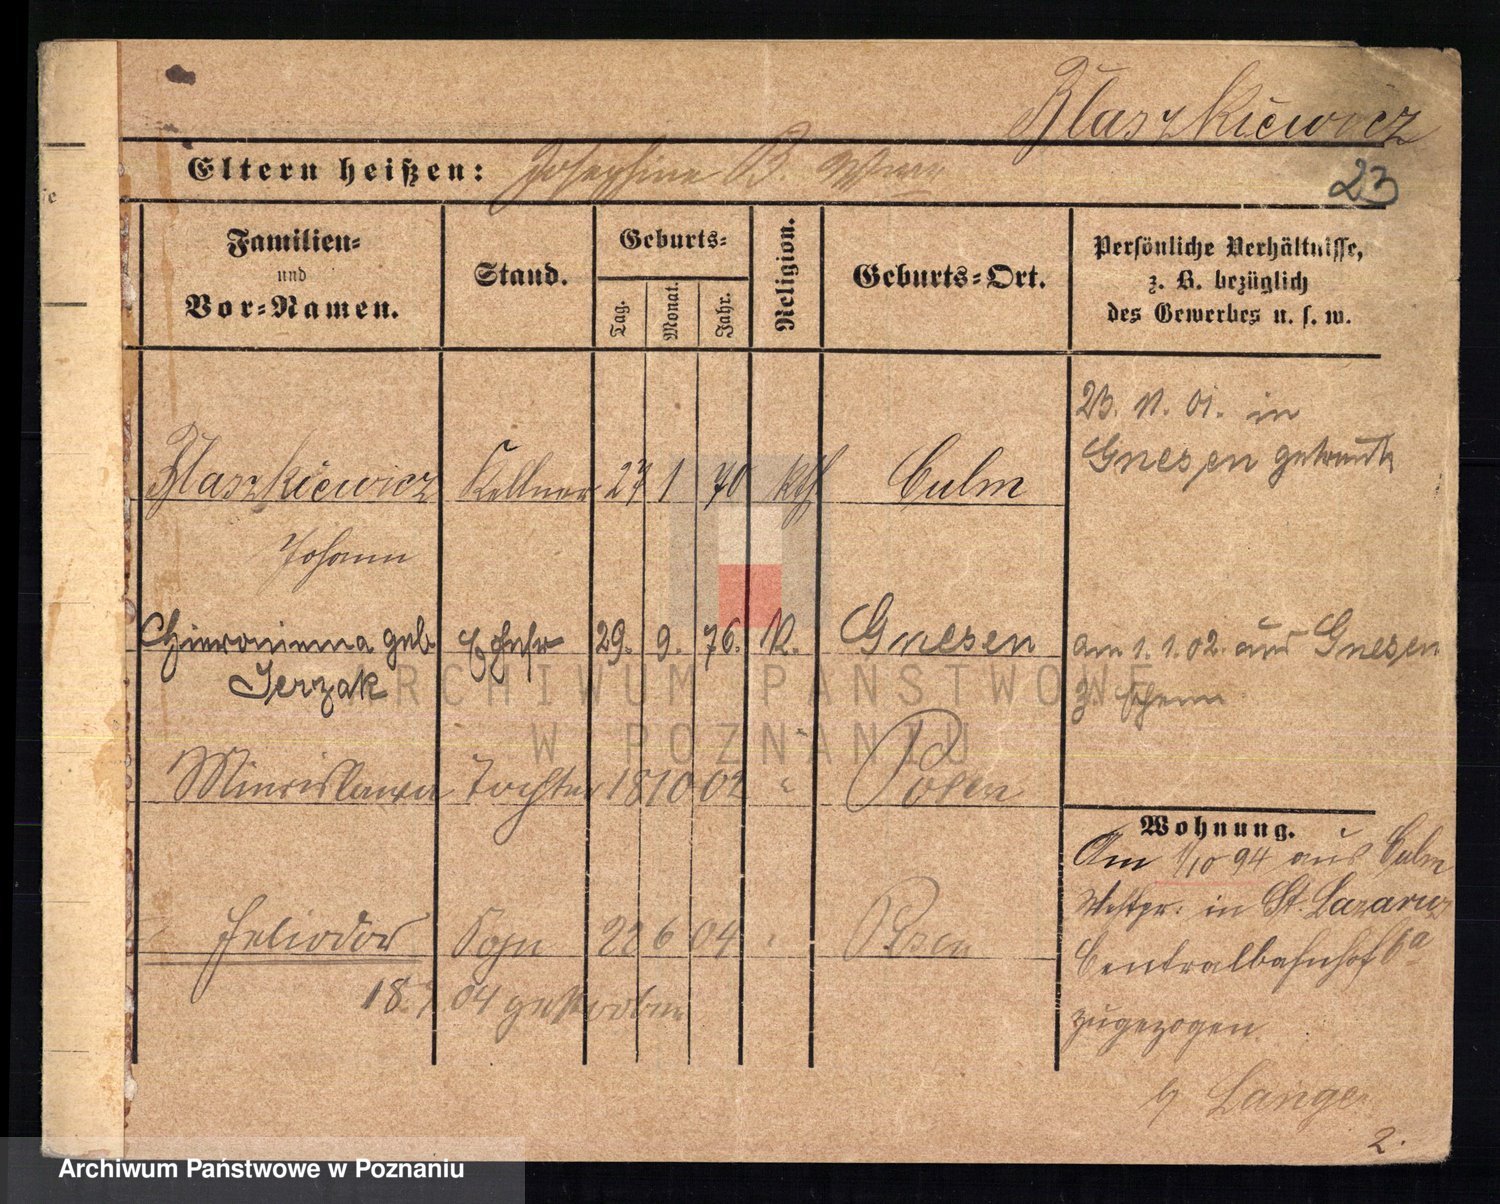 Blaszkiewicz
Eltern heißen: Josephine B.
23
Familien-
und
Vor-Namen.
Stand.
Geburts-
Tag.
Monat.
Jahr.
Religion.
Geburts-Ort.
Persönliche Verhältnisse,
z. B. bezüglich
des Gewerbes u. s. w.
23. 11. 01. in
Gnesen getraut
Blaszkiewicz Kellner 27 1 70 kth Culm
Johann
Hieronima geb. Ehefr 29. 9. 76. K. Gnesen
Jerzak
am 1. 1. 02. aus Gnesen
z.
Miecislawa Tochter 18 10 02 " Posen
Wohnung.
Am 1/10 94 aus Culm
Westpr. in St. Lazarus
Centralbahnhof 6a
zugezogen.
Heliodor Sohn 22 6 04 " Posen
18. 7. 04 gestorben
b/ Lange
2.
ARCHIWUM PAŃSTWOWE
W POZNANIU
Archiwum Państwowe w Poznaniu